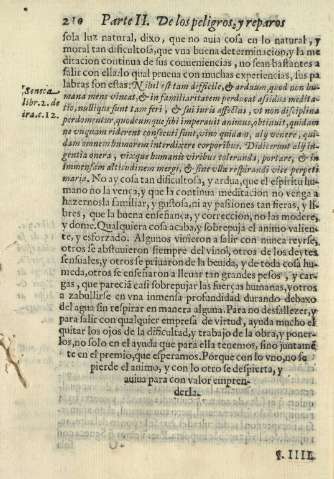 210 Parte II. De los peligros, y reparos
sola luz natural, dixo, que no auia cosa en lo natural, y
moral tan dificultosa, que vna buena determinacion, y la me
ditacion continua de sus conueniencias, no sean bastantes a
salir con ella: lo qual prueua con muchas experiencias, sus pa
labras son estas: Nihil est tam difficile, & arduum, quod non hu-
*Seneca
libr. 2. de
ira. c. 12.
mana mens vincat, & in familiaritatem perducat assidua medita-
tio, nullique sunt tam feri, & sui iuris affectus, vt non disciplina
perdomentur, quodcumque sibi imperauit animus, obtinuit, quidam
ne vnquam riderent consecuti sunt, vino quidam, alij venere, qui-
dam omnem humorem interdixere corporibus. Didicerunt alij in-
gentia onera, vixque humanis viribus toleranda, portare, & in
immensam altitudinem mergi, & sine vlla respirandi vice perpeti
maria. No ay cosa tan dificultosa, y ardua, que el espiritu hu-
mano no la vença, y que la continua meditacion no venga a
hazernosla familiar, y gustosa, ni ay passiones tan fieras, y li-
bres, que la buena enseñança, y correccion, no las modere,
y dome. Qualquiera cosa acaba, y sobrepuja el animo valien-
te, y esforzado. Algunos vinieron a salir con nunca reyrse,
otros se abstuuieron siempre del vino, otros de los deytes
sensuales, y otros se priuaron de la beuida, y de toda cosa hu-
meda, otros se enseñaron a lleuar tan grandes pesos, y car-
gas, que pareciã casi sobrepujar las fuerças humanas, y otros
a zabullirse en vna inmensa profundidad durando debaxo
del agua sin respirar en manera alguna. Para no desfallezer, y
para salir con qualquier empresa de virtud, ayuda mucho el
quitar los ojos de la dificultad, y trabajo de la obra, y poner-
los, no solo en el ayuda que para ella tenemos, sino juntamẽ
te en el premio, que esperamos. Porque con lo vno, no se
pierde el animo, y con lo otro se despierta, y
auiua para con valor empren-
derla.
§. IIII.